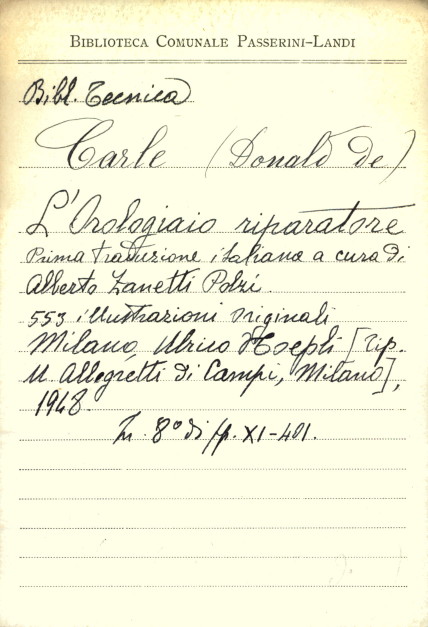 BIBLIOTECA COMUNALE PASSERINI-LANDI
Bibl. Tecnica
Carle (Donald de)
L'Orologiaio riparatore
Prima traduzione italiana a cura di
Alberto Zanetti Polzi.
553 illustrazioni originali
Milano, Ulrico Hoepli [tip.
U. Allegretti di Campi, Milano],
1948.
In 8° di pp. XI-401.